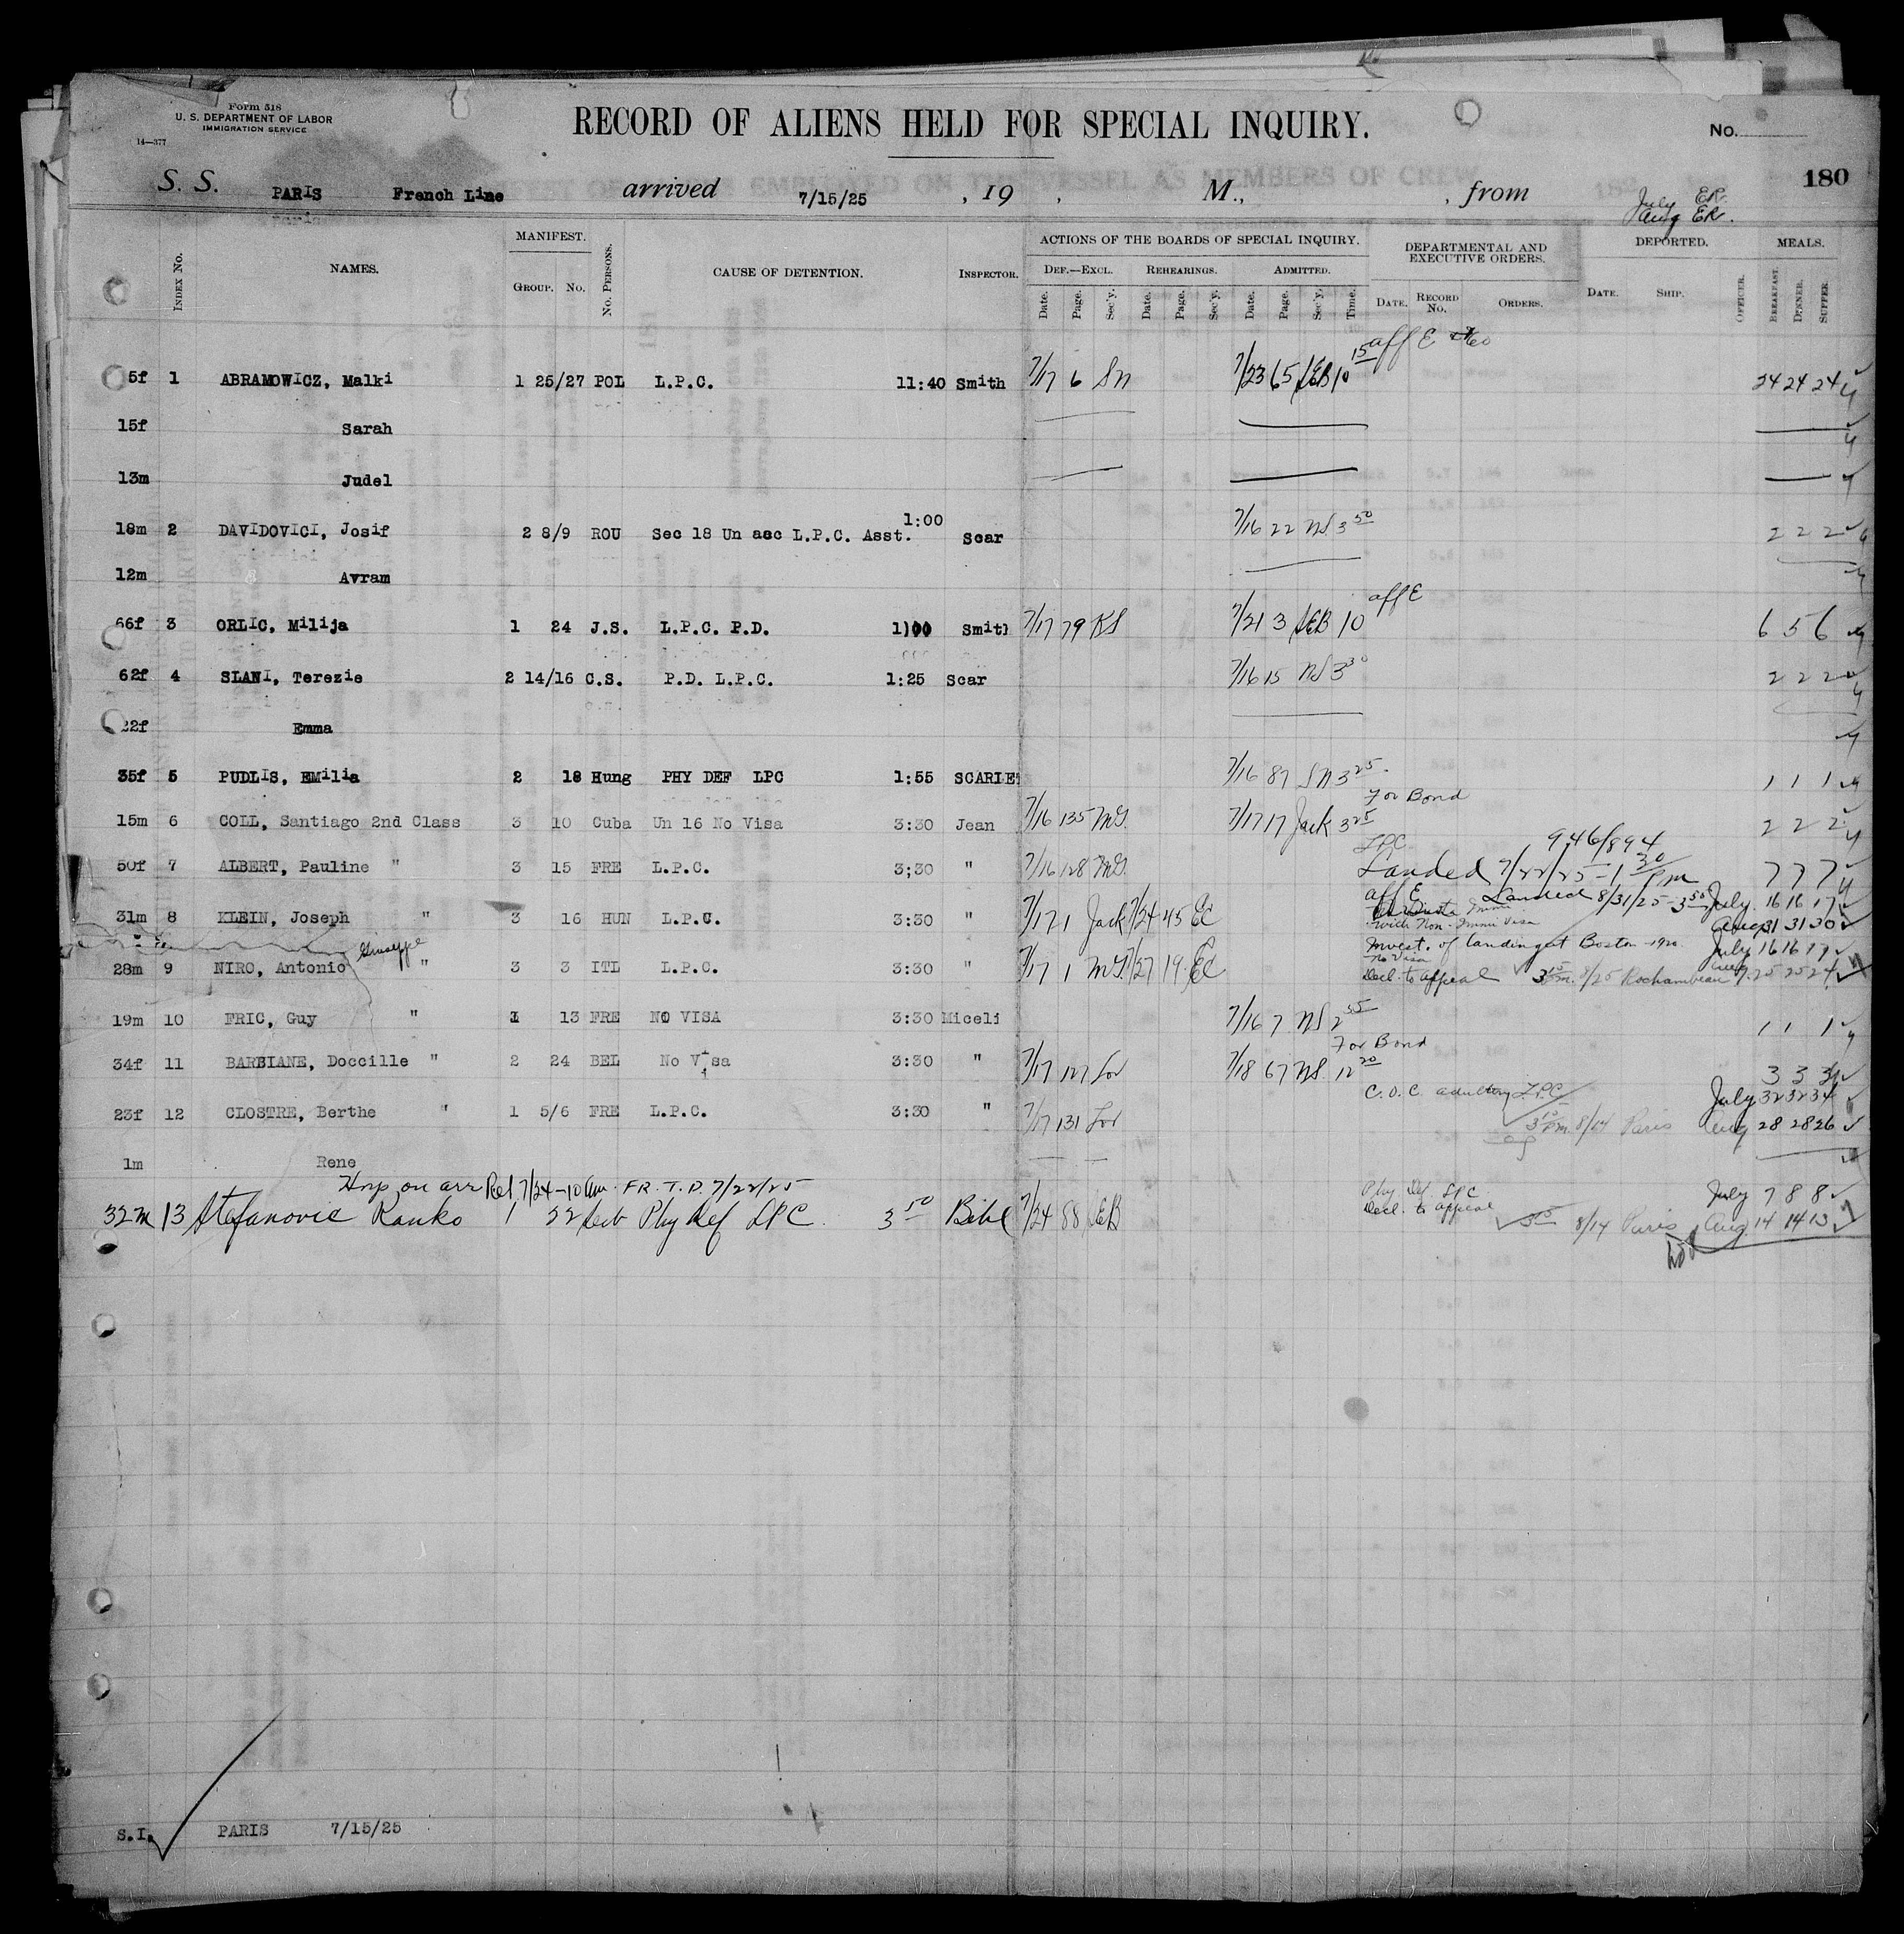 Form 518
U. S. DEPARTMENT OF LABOR
IMMIGRATION SERVICE
14—377
RECORD OF ALIENS HELD FOR SPECIAL INQUIRY.
No.
180
S. S. PARIS French Line arrived 7/15/25 , 19 , M., , from
July ER.
Aug ER.
INDEX No. NAMES. MANIFEST. GROUP. No. No. PERSONS. CAUSE OF DETENTION. INSPECTOR. ACTIONS OF THE BOARDS OF SPECIAL INQUIRY. DEF.—EXCL. REHEARINGS. ADMITTED. DEPARTMENTAL AND EXECUTIVE ORDERS. DEPORTED. MEALS.
Date. Page. Sec'y. Date. Page. Sec'y. Date. Page. Sec'y. Time. DATE. RECORD No. ORDERS. DATE. SHIP. OFFICER. BREAKFAST. DINNER. SUPPER.
aff E
5f 1 ABRAMOWICZ, Malki 1 25/27 POL L.P.C. 11:40 Smith 7/17 6 SN 7/23 65 SEB 10 15 24 24 24
15f Sarah
13m Judel
18m 2 DAVIDOVICI, Josif 2 8/9 ROU Sec 18 Un acc L.P.C. Asst. 1:00 Scar 7/16 22 NS 3 50 2 2 2
12m Avram
aff E
66f 3 ORLIC, Milija 1 24 J.S. L.P.C. P.D. 1)00 Smith 7/17 79 KS 7/21 3 SEB 10 6 5 6
62f 4 SLANI, Terezie 2 14/16 C.S. P.D. L.P.C. 1:25 Scar 7/16 15 NS 3 30 2 2 2
22f Emma
35f 5 PUDLIS, EMilia 2 18 Hung PHY DEF LPC 1:55 SCARLET 7/16 87 SN 3 25 1 1 1
For Bond
15m 6 COLL, Santiago 2nd Class 3 10 Cuba Un 16 No Visa 3:30 Jean 7/16 135 MG. 7/17 17 Jack 3 25 2 2 2
LPC 946/894
50f 7 ALBERT, Pauline " 3 15 FRE L.P.C. 3;30 " 7/16 128 MG. Landed 7/22/25 - 1 30 Pm 7 7 7
aff E Landed 8/31/25 - 3 50 July 16 16 17
31m 8 KLEIN, Joseph " 3 16 HUN L.P.C. 3:30 " 7/17 1 Jack 7/24 45 EC with Non-Immi Visa Aug 31 31 30
Giuseppe Invest. of landing at Boston 1920. July 16 16 17
No Visa
28m 9 NIRO, Antonio " 3 3 ITL L.P.C. 3:30 " 7/17 1 MG 7/27 19 EC Decl. to appeal 3 15 Pm. 8/25 Rochambeau Aug. 25 25 24
19m 10 FRIC, Guy " 1 13 FRE NO VISA 3:30 Miceli 7/16 7 NS 2 55 1 1 1
For Bond
34f 11 BARBIANE, Doccille " 2 24 BEL No Visa 3:30 " 7/17 127 Lov 7/18 67 NS. 12 20 3 3 3
C.O.C. adultery LPC July 32 32 34
23f 12 CLOSTRE, Berthe " 1 5/6 FRE L.P.C. 3:30 " 7/17 131 Lov 3 15 Pm. 8/14 Paris Aug 28 28 26
1m Rene
Hosp on arr Rel 7/24 - 10 am. FR. T.D. 7/22/25 Phy Def. LPC July 7 8 8
Decl. to appeal
32m 13 Stefanovic Ranko 1 22 Serb Phy Def LPC. 3 50 Bihl 7/24 88 SEB 3 15 8/14 Paris Aug 14 14 13
S.I. PARIS 7/15/25